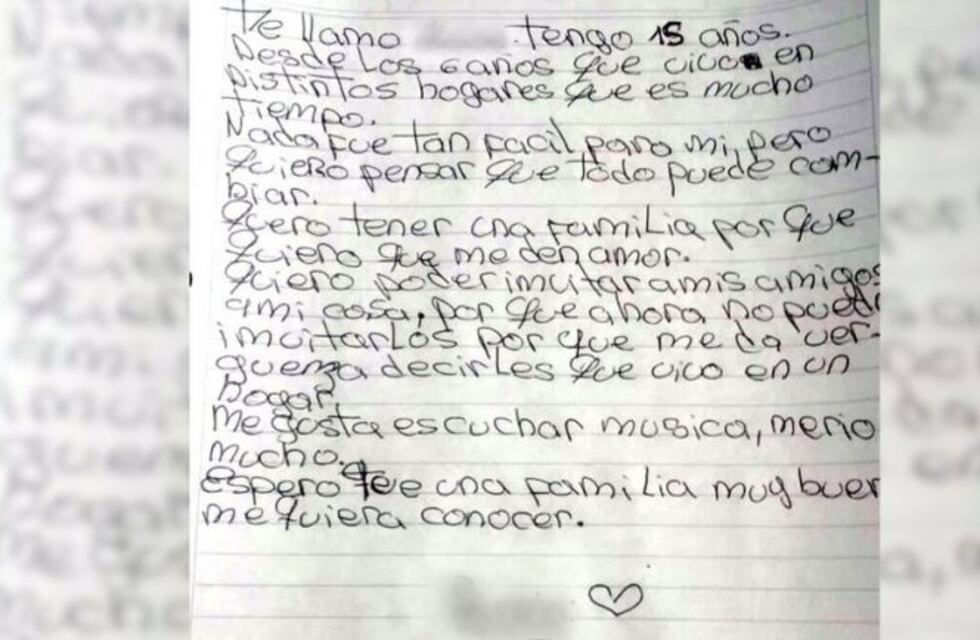 Me llamo tengo 15 años.
Desde los 6 años que vivo en
Distintos hogares que es mucho
Tiempo.
Nada fue tan facil para mi, pero
Quiero pensar que todo puede cam-
biar.
Quero tener una familia por que
Quiero que me den amor.
Quiero poder imvitar a mis amigos
a mi casa, por que ahora no puedo
imvitarlos por que me da ver-
guenza decirles que vivo en un
hogar.
Me gusta escuchar musica, me rio
mucho.
espero que una familia muy buen
me quiera conocer.